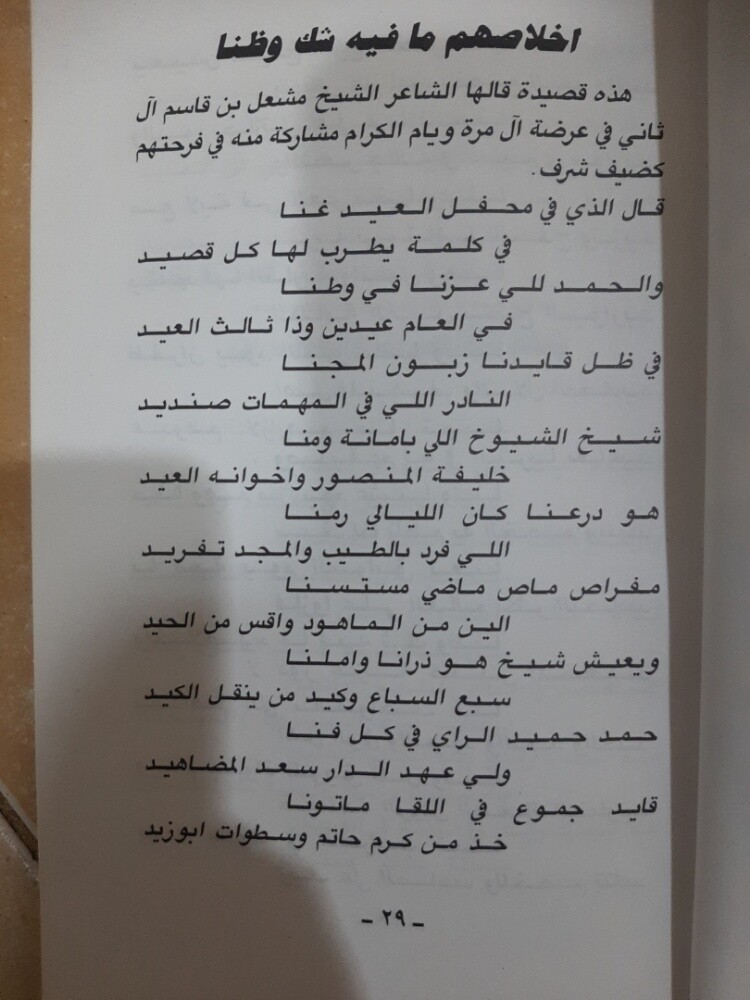 اخلاصهم ما فيه شك وظنا
هذه قصيدة قالها الشاعر الشيخ مشعل بن قاسم آل
ثاني في عرضة آل مرة ويام الكرام مشاركة منه في فرحتهم
كضيف شرف.
قال الذي في محفل العيد غنا
في كلمة يطرب لها كل قصيد
والحمد للي عزنا في وطنا
في العام عيدين وذا ثالث العيد
في ظل قايدنا زبون المجنا
النادر اللي في المهمات صنديد
شيخ الشيوخ اللي بامانة ومنا
خليفة المنصور واخوانه العيد
هو درعنا كان الليالي رمنا
اللي فرد بالطيب والمجد تفريد
مفراص ماص ماضي مستسنا
الين من الماهود واقس من الحيد
ويعيش شيخ هو ذرانا واملنا
سبع السباع وكيد من ينقل الكيد
حمد حميد الراي في كل فنا
ولي عهد الدار سعد المضاهيد
قايد جموع في اللقا ماتونا
خذ من كرم حاتم وسطوات ابوزيد
- ٢٩ -